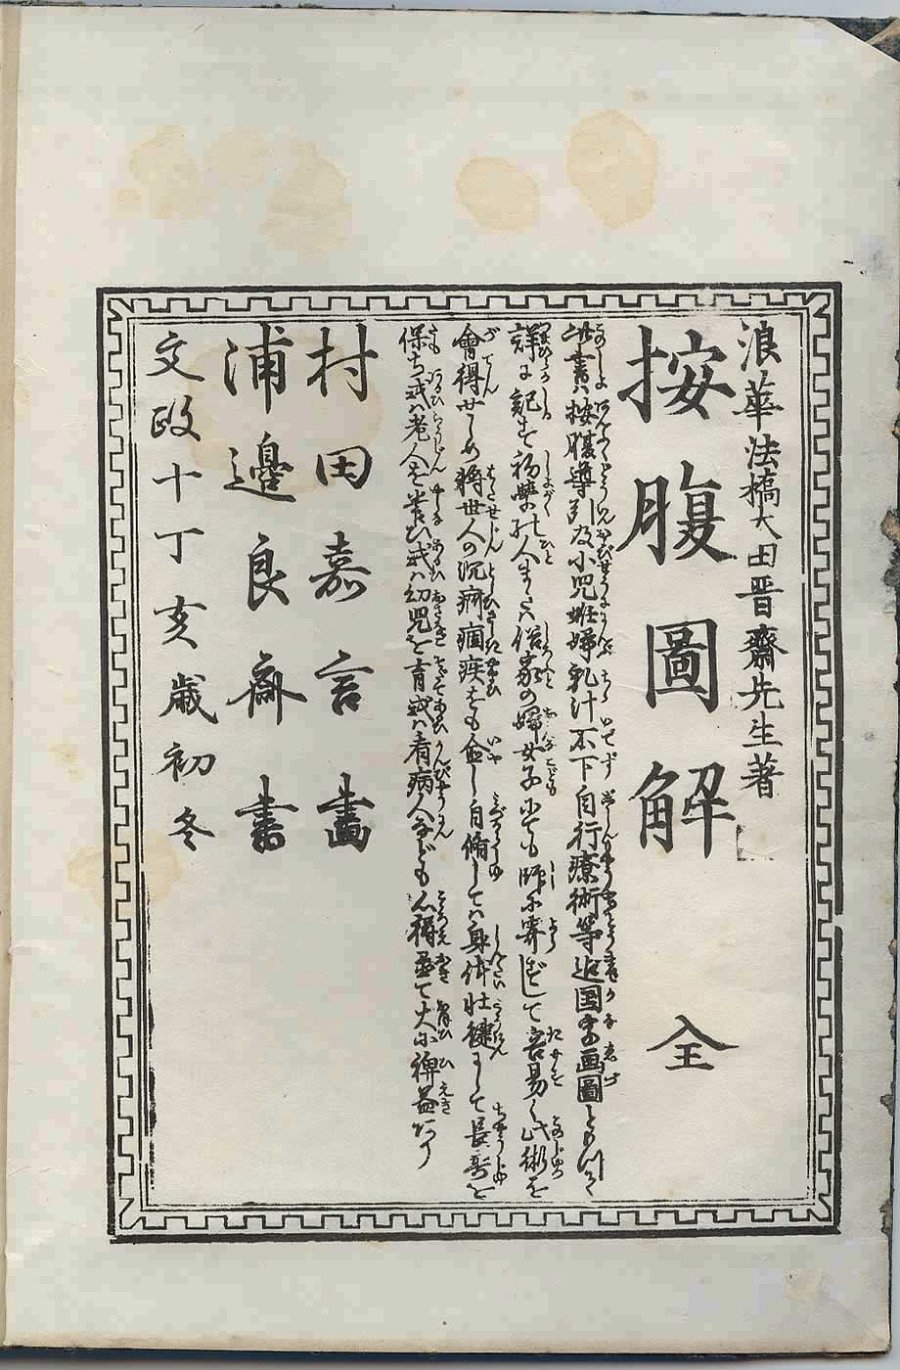 浪華法橋大田晋齋先生著
按腹圖解 全
此書ハ按腹導引及小児妊婦乳汁不下自行療術等迄国字画圖ともつて
詳に記す初學の人または俗家の婦女子にても師に寄ずして容易く此術を
會得せしめ將世人の沉痾痼疾をも愈し自脩しては身体壮健にして長寿を
保ち或ハ老人を養ひ或ハ幼児を育或ハ看病人なども心得置て大に裨益あり
村田嘉言畫
浦邊良齋書
文政十丁亥歳初冬